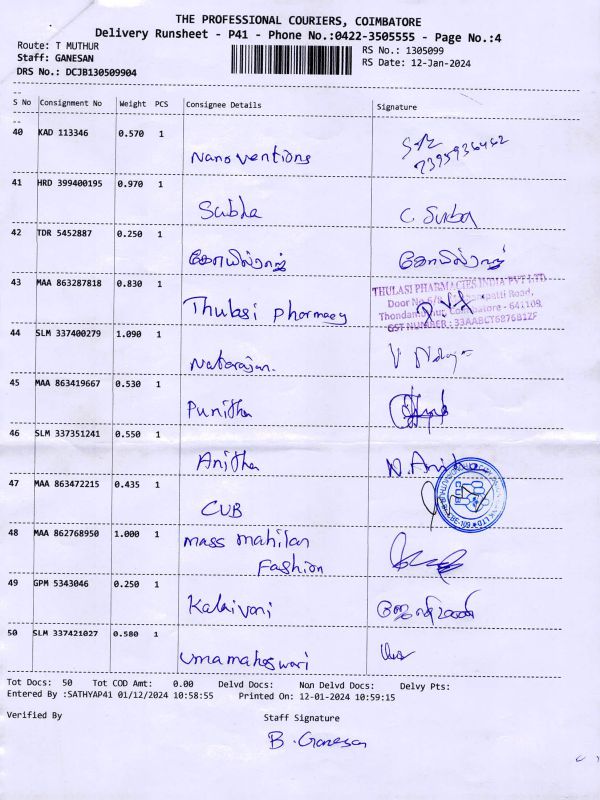 THE PROFESSIONAL COURIERS, COIMBATORE
Delivery Runsheet - P41 - Phone No.:0422-3505555 - Page No.:4
Route: T MUTHUR
RS No.: 1305099
Staff: GANESAN
RS Date: 12-Jan-2024
DRS No.: DCJB130509904
S No Consignment No Weight PCS Consignee Details Signature
40 KAD 113346 0.570 1
Nanoventions
7395936462
41 HRD 399400195 0.970 1
Subha
42 TDR 5452887 0.250 1
கோயில்ராஜ் கோயில்ராஜ்
43 MAA 863287818 0.830 1
Thulasi pharmacy
THULASI PHARMACIES INDIA PVT LTD
Door No
Thondamuthur, Coimbatore - 641109.
GST NUMBER : 33AABCY6876B1ZF
44 SLM 337400279 1.090 1
Natarajan.
45 MAA 863419667 0.530 1
Punitha
46 SLM 337351241 0.550 1
Anitha N. Anitha
47 MAA 863472215 0.435 1
CUB
48 MAA 862768950 1.000 1
mass mahilan
Fashion
49 GPM 5343046 0.250 1
Kalaivani
50 SLM 337421027 0.580 1
umamaheswari
Tot Docs: 50 Tot COD Amt: 0.00 Delvd Docs: Non Delvd Docs: Delvy Pts:
Entered By :SATHYAP41 01/12/2024 10:58:55 Printed On: 12-01-2024 10:59:15
Verified By Staff Signature
B. Ganesan